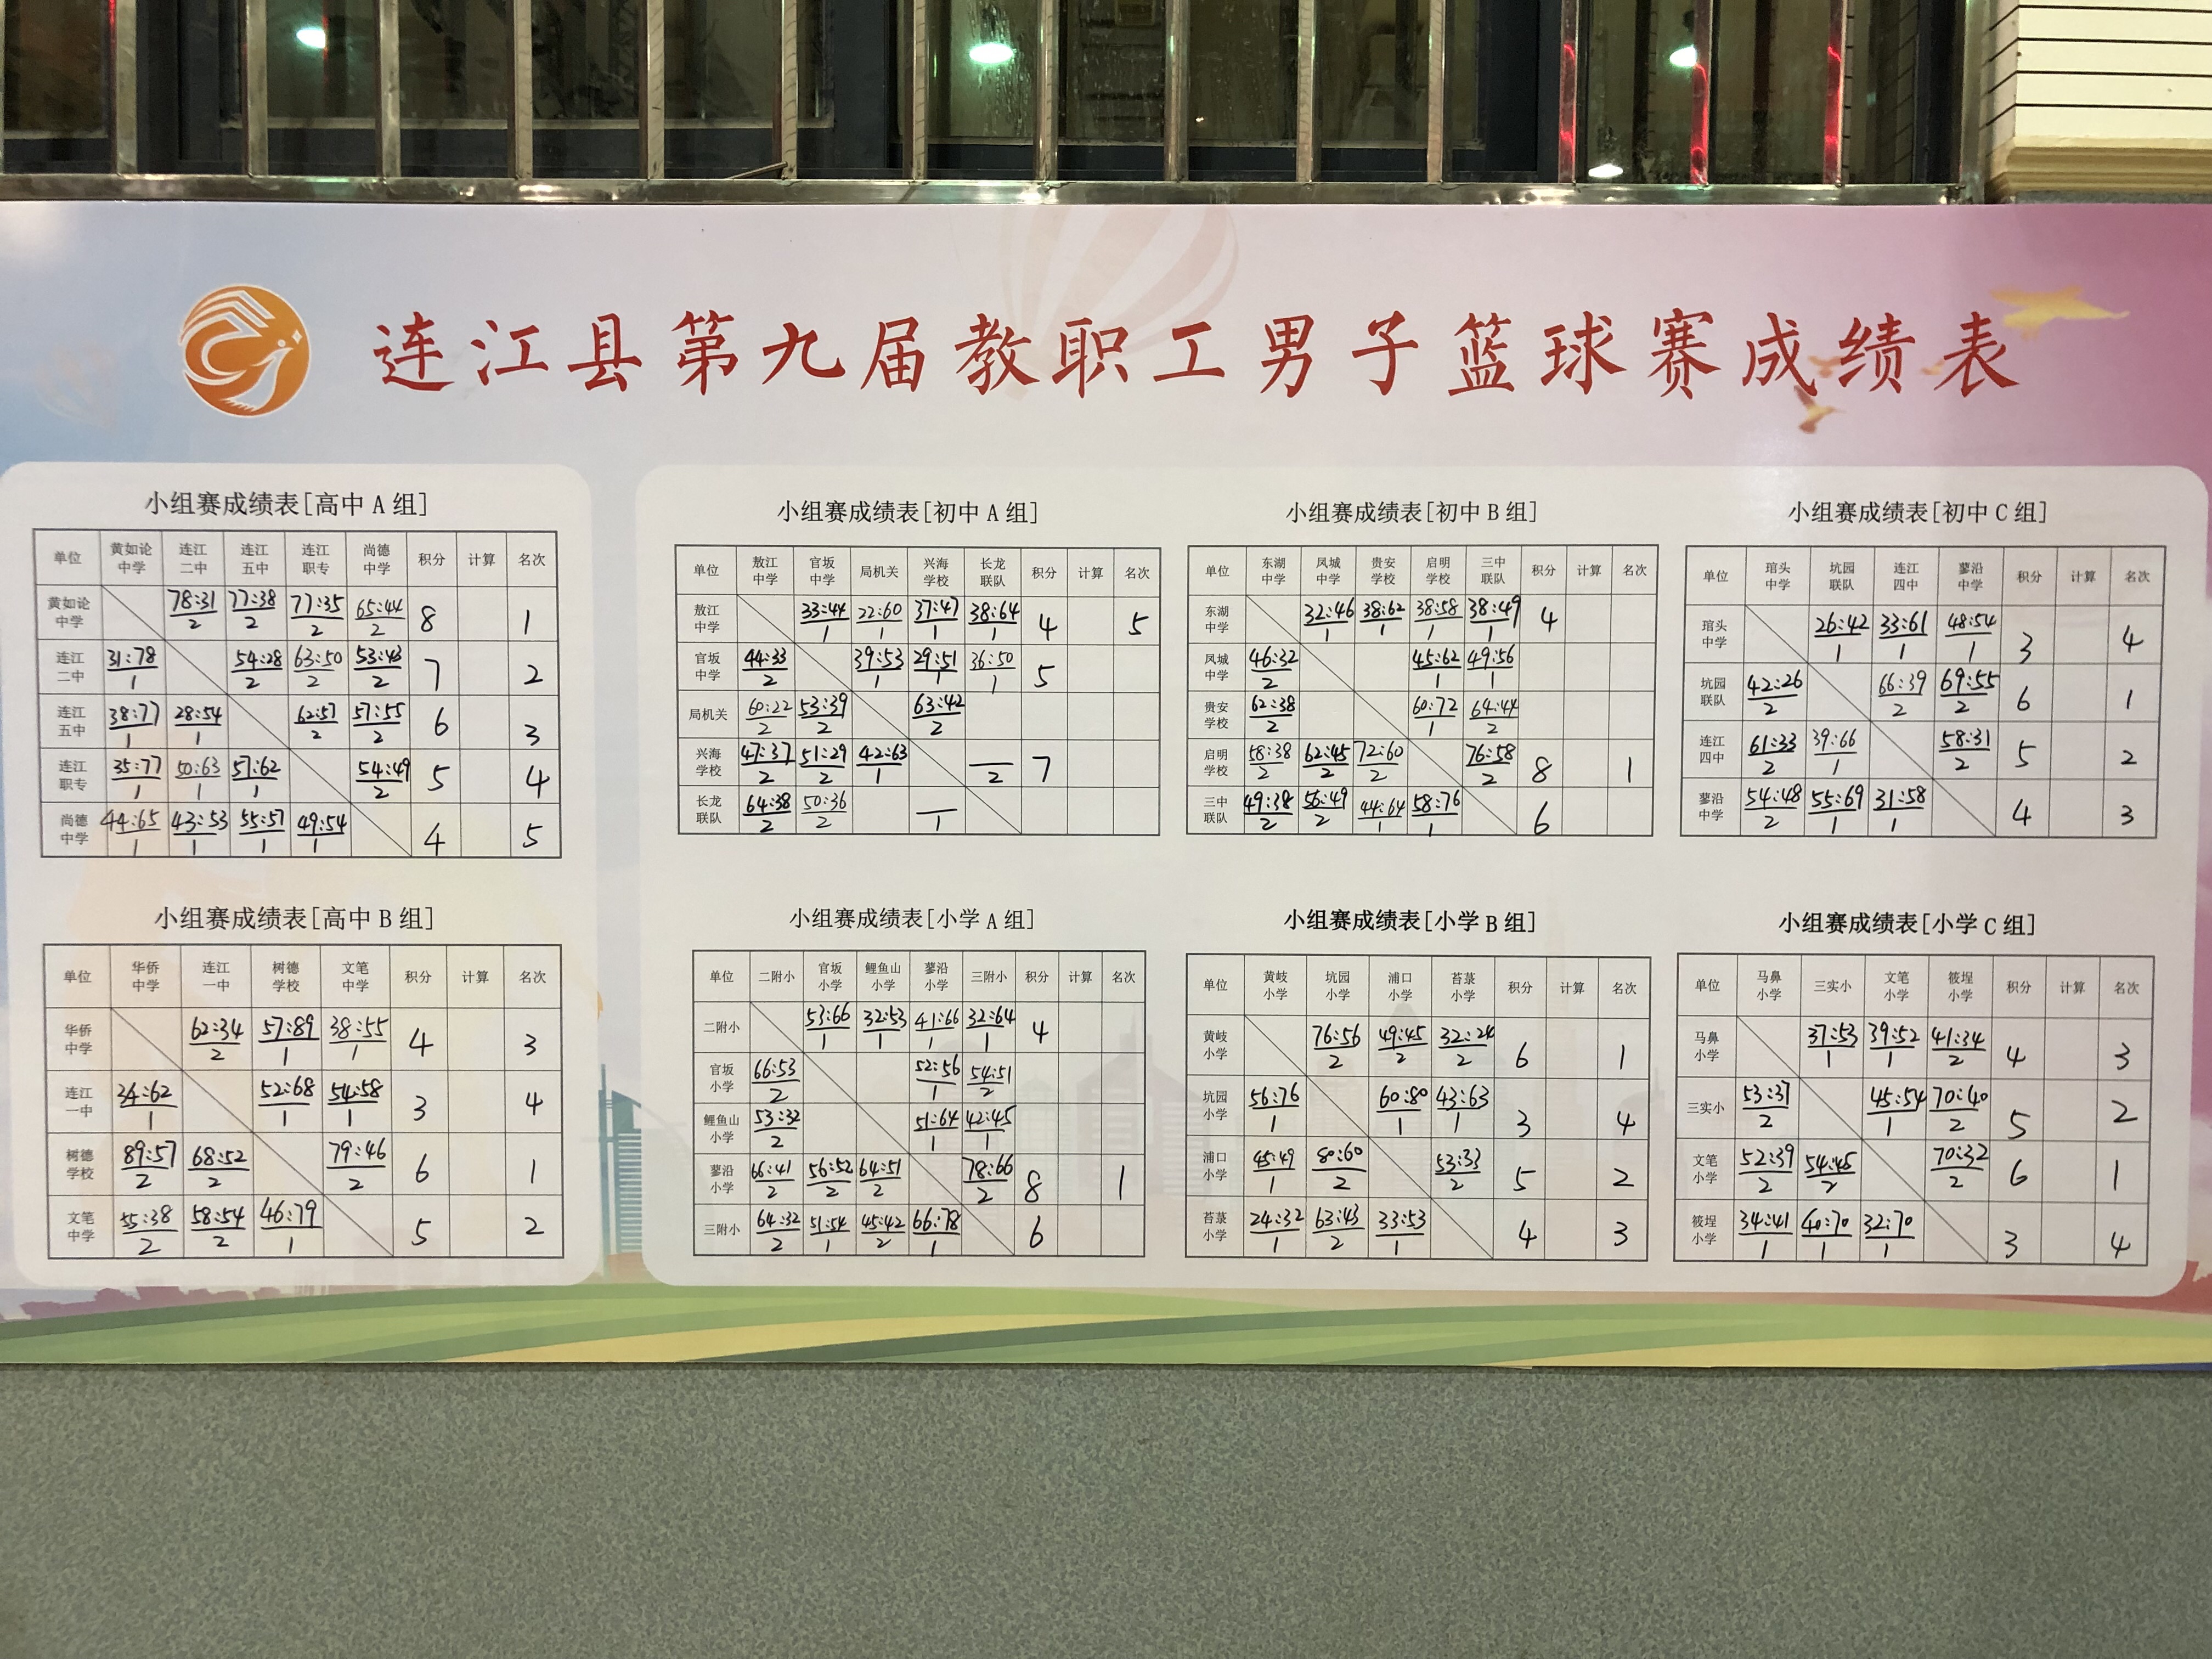 连江县第九届教职工男子篮球赛成绩表
小组赛成绩表[高中A组]
单位 黄如论中学 连江二中 连江五中 连江职专 尚德中学 积分 计算 名次
黄如论中学 78:31 2 77:38 2 77:35 2 65:44 2 8 1
连江二中 31:78 1 54:28 2 63:50 2 53:43 2 7 2
连江五中 38:77 1 28:54 1 62:57 2 57:55 2 6 3
连江职专 35:77 1 50:63 1 57:62 1 54:49 2 5 4
尚德中学 44:65 1 43:53 1 55:57 1 49:54 1 4 5
小组赛成绩表[初中A组]
单位 敖江中学 官坂中学 局机关 兴海学校 长龙联队 积分 计算 名次
敖江中学 33:44 1 22:60 1 37:47 1 38:64 1 4 5
官坂中学 44:33 2 39:53 1 29:51 1 36:50 1 5
局机关 60:22 2 53:39 2 63:42 2
兴海学校 47:37 2 51:29 2 42:63 1 2 7
长龙联队 64:38 2 50:36 2 1
小组赛成绩表[初中B组]
单位 东湖中学 凤城中学 贵安学校 启明学校 三中联队 积分 计算 名次
东湖中学 32:46 1 38:62 1 38:58 1 38:49 1 4
凤城中学 46:32 2 45:62 1 49:56 1
贵安学校 62:38 2 60:72 1 64:44 2
启明学校 58:38 2 62:45 2 72:60 2 76:58 2 8 1
三中联队 49:38 2 56:49 2 44:64 1 58:76 1 6
小组赛成绩表[初中C组]
单位 琯头中学 坑园联队 连江四中 蓼沿中学 积分 计算 名次
琯头中学 26:42 1 33:61 1 48:54 1 3 4
坑园联队 42:26 2 66:39 2 69:55 2 6 1
连江四中 61:33 2 39:66 1 58:31 2 5 2
蓼沿中学 54:48 2 55:69 1 31:58 1 4 3
小组赛成绩表[高中B组]
单位 华侨中学 连江一中 树德学校 文笔中学 积分 计算 名次
华侨中学 62:34 2 57:89 1 38:55 1 4 3
连江一中 34:62 1 52:68 1 54:58 1 3 4
树德学校 89:57 2 68:52 2 79:46 2 6 1
文笔中学 55:38 2 58:54 2 46:79 1 5 2
小组赛成绩表[小学A组]
单位 二附小 官坂小学 鲤鱼山小学 蓼沿小学 三附小 积分 计算 名次
二附小 53:66 1 32:53 1 41:66 1 32:64 1 4
官坂小学 66:53 2 52:56 1 54:51 2
鲤鱼山小学 53:32 2 51:64 1 42:45 1
蓼沿小学 66:41 2 56:52 2 64:51 2 78:66 2 8 1
三附小 64:32 2 51:54 1 45:42 2 66:78 1 6
小组赛成绩表[小学B组]
单位 黄岐小学 坑园小学 浦口小学 苔菉小学 积分 计算 名次
黄岐小学 76:56 2 49:45 2 32:24 2 6 1
坑园小学 56:76 1 60:80 1 43:63 1 3 4
浦口小学 45:49 1 80:60 2 53:33 2 5 2
苔菉小学 24:32 1 63:43 2 33:53 1 4 3
小组赛成绩表[小学C组]
单位 马鼻小学 三实小 文笔小学 筱埕小学 积分 计算 名次
马鼻小学 37:53 1 39:52 1 41:34 2 4 3
三实小 53:37 2 45:54 1 70:40 2 5 2
文笔小学 52:39 2 54:45 2 70:32 2 6 1
筱埕小学 34:41 1 40:70 1 32:70 1 3 4